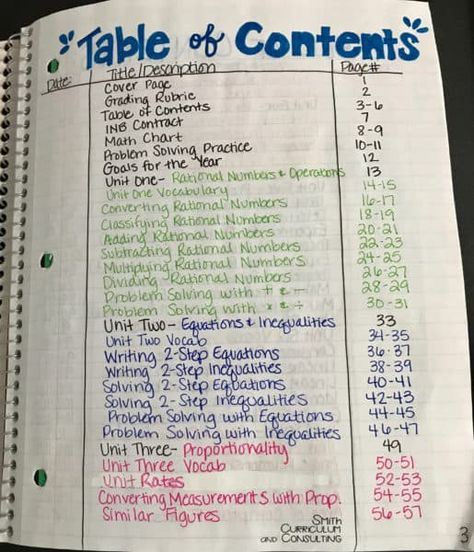 Table of Contents
Date: Title/Description Page#
Cover Page 1
Grading Rubric 2
Table of Contents 3-6
INB Contract 7
Math Chart 8-9
Problem Solving Practice 10-11
Goals for the Year 12
Unit One- Rational Numbers & Operations 13
Unit One Vocabulary 14-15
Converting Rational Numbers 16-17
Classifying Rational Numbers 18-19
Adding Rational Numbers 20-21
Subtracting Rational Numbers 22-23
Multiplying Rational Numbers 24-25
Dividing Rational Numbers 26-27
Problem Solving with + & - 28-29
Problem Solving with x & ÷ 30-31
Unit Two- Equations & Inequalities 33
Unit Two Vocab 34-35
Writing 2-Step Equations 36-37
Writing 2-Step Inequalities 38-39
Solving 2-Step Equations 40-41
Solving 2-Step Inequalities 42-43
Problem Solving with Equations 44-45
Problem Solving with Inequalities 46-47
Unit Three- Proportionality 49
Unit Three Vocab 50-51
Unit Rates 52-53
Converting Measurements with Prop. 54-55
Similar Figures 56-57
Smith
Curriculum
and Consulting
3